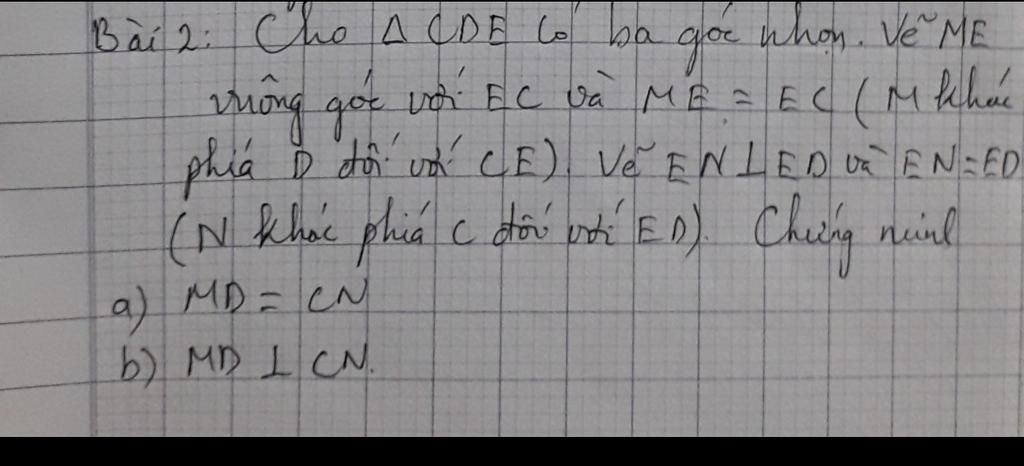 Bài 2: Cho Δ CDE có ba góc nhọn. Vẽ ME
vuông góc với EC và ME = EC (M khác
phiá D đối với CE). Vẽ EN ⊥ ED và EN = ED
(N khác phiá C đối với ED). Chứng minh
a) MD = CN
b) MD ⊥ CN.